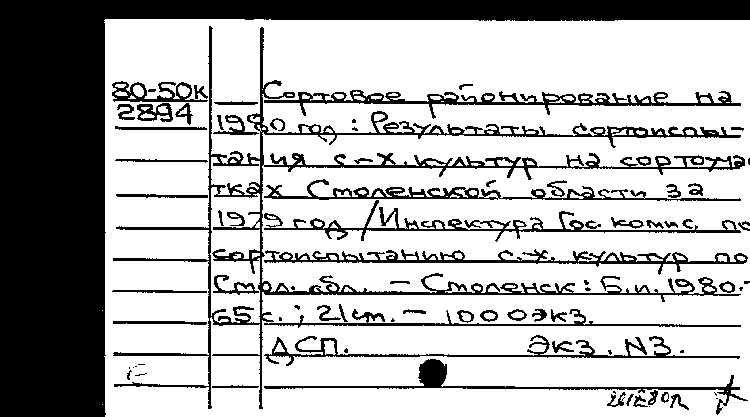 80-50к
2894
Сортовое районирование на
1980 год : Результаты сортоиспы-
тания с-х. культур на сортоучас
тках Смоленской области за
1979 год / Инспектура Гос. комис. по
сортоиспытанию с.-х. культур по
Смол. обл. - Смоленск : Б.и., 1980.-
65 с. ; 21 см. - 1000 экз.
ДСП. Экз. N3.